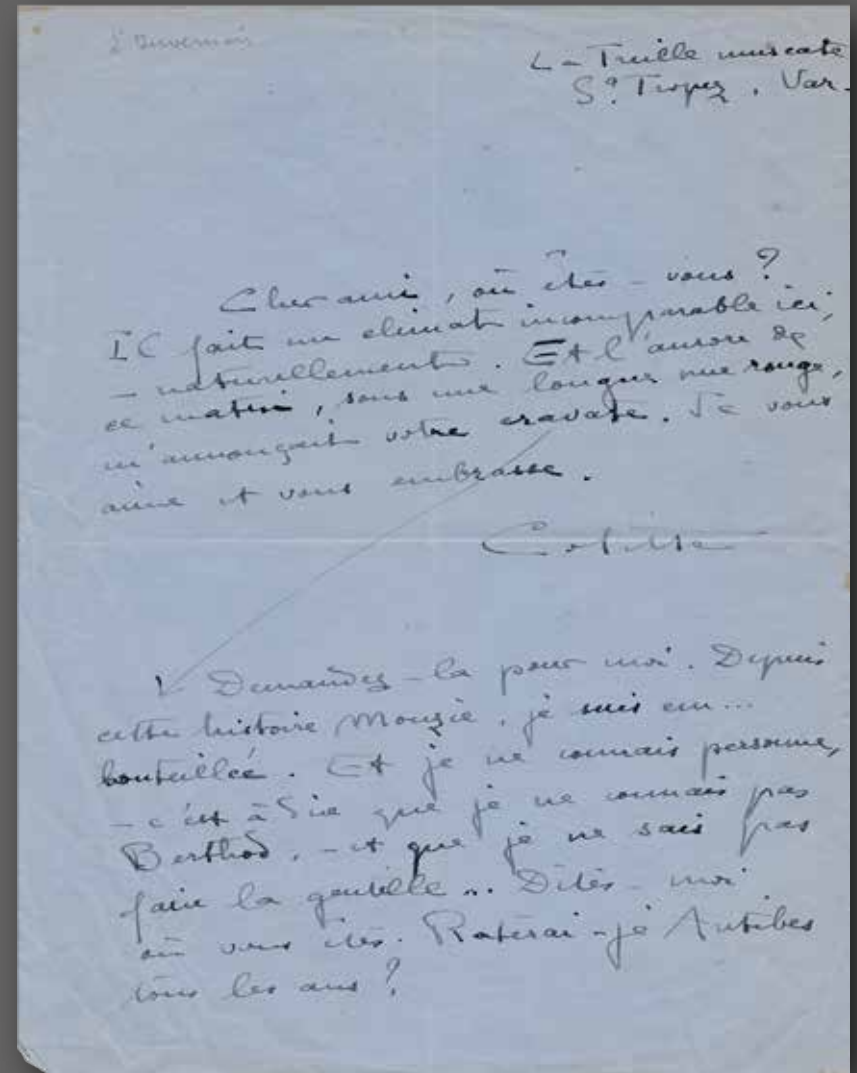 La Treille muscate
St. Tropez, Var-
Cher ami, où êtes-vous?
Il fait un climat incomparable ici,
- naturellement. Et l'aurore de
ce matin, sous une longue nue rouge,
m'annonçait votre cravate. Je vous
aime et vous embrasse.
Colette
Demandez-la pour moi. Depuis
cette histoire Monzie, je suis em...
bouteillée. Et je ne connais personne,
- c'est à dire que je ne connais pas
Berthod, - et que je ne sais pas
faire la gentille... Dites-moi
où vous êtes. Raterai-je Antibes
tous les ans?